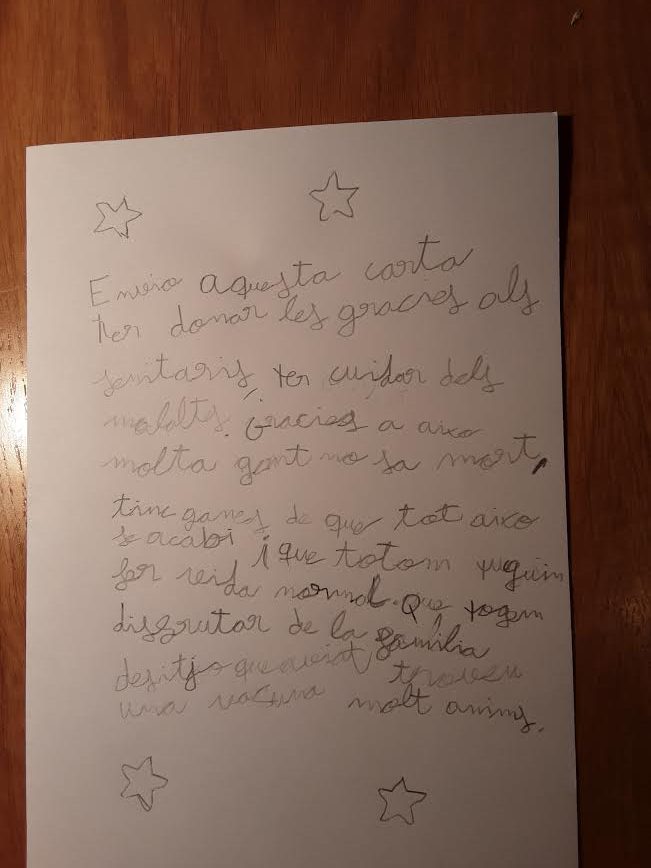 Envio aquesta carta
per donar les gracies als
senitaris, per cuidar dels
malalts. Gracies a aixo
molta gent no sa mort,
tinc ganes de que tot aixo
se acabi i que totom puguin
fer veida normal. Que pogem
disfrutar de la familia
desitjo que aviat troveu
una vacuna molt anims.